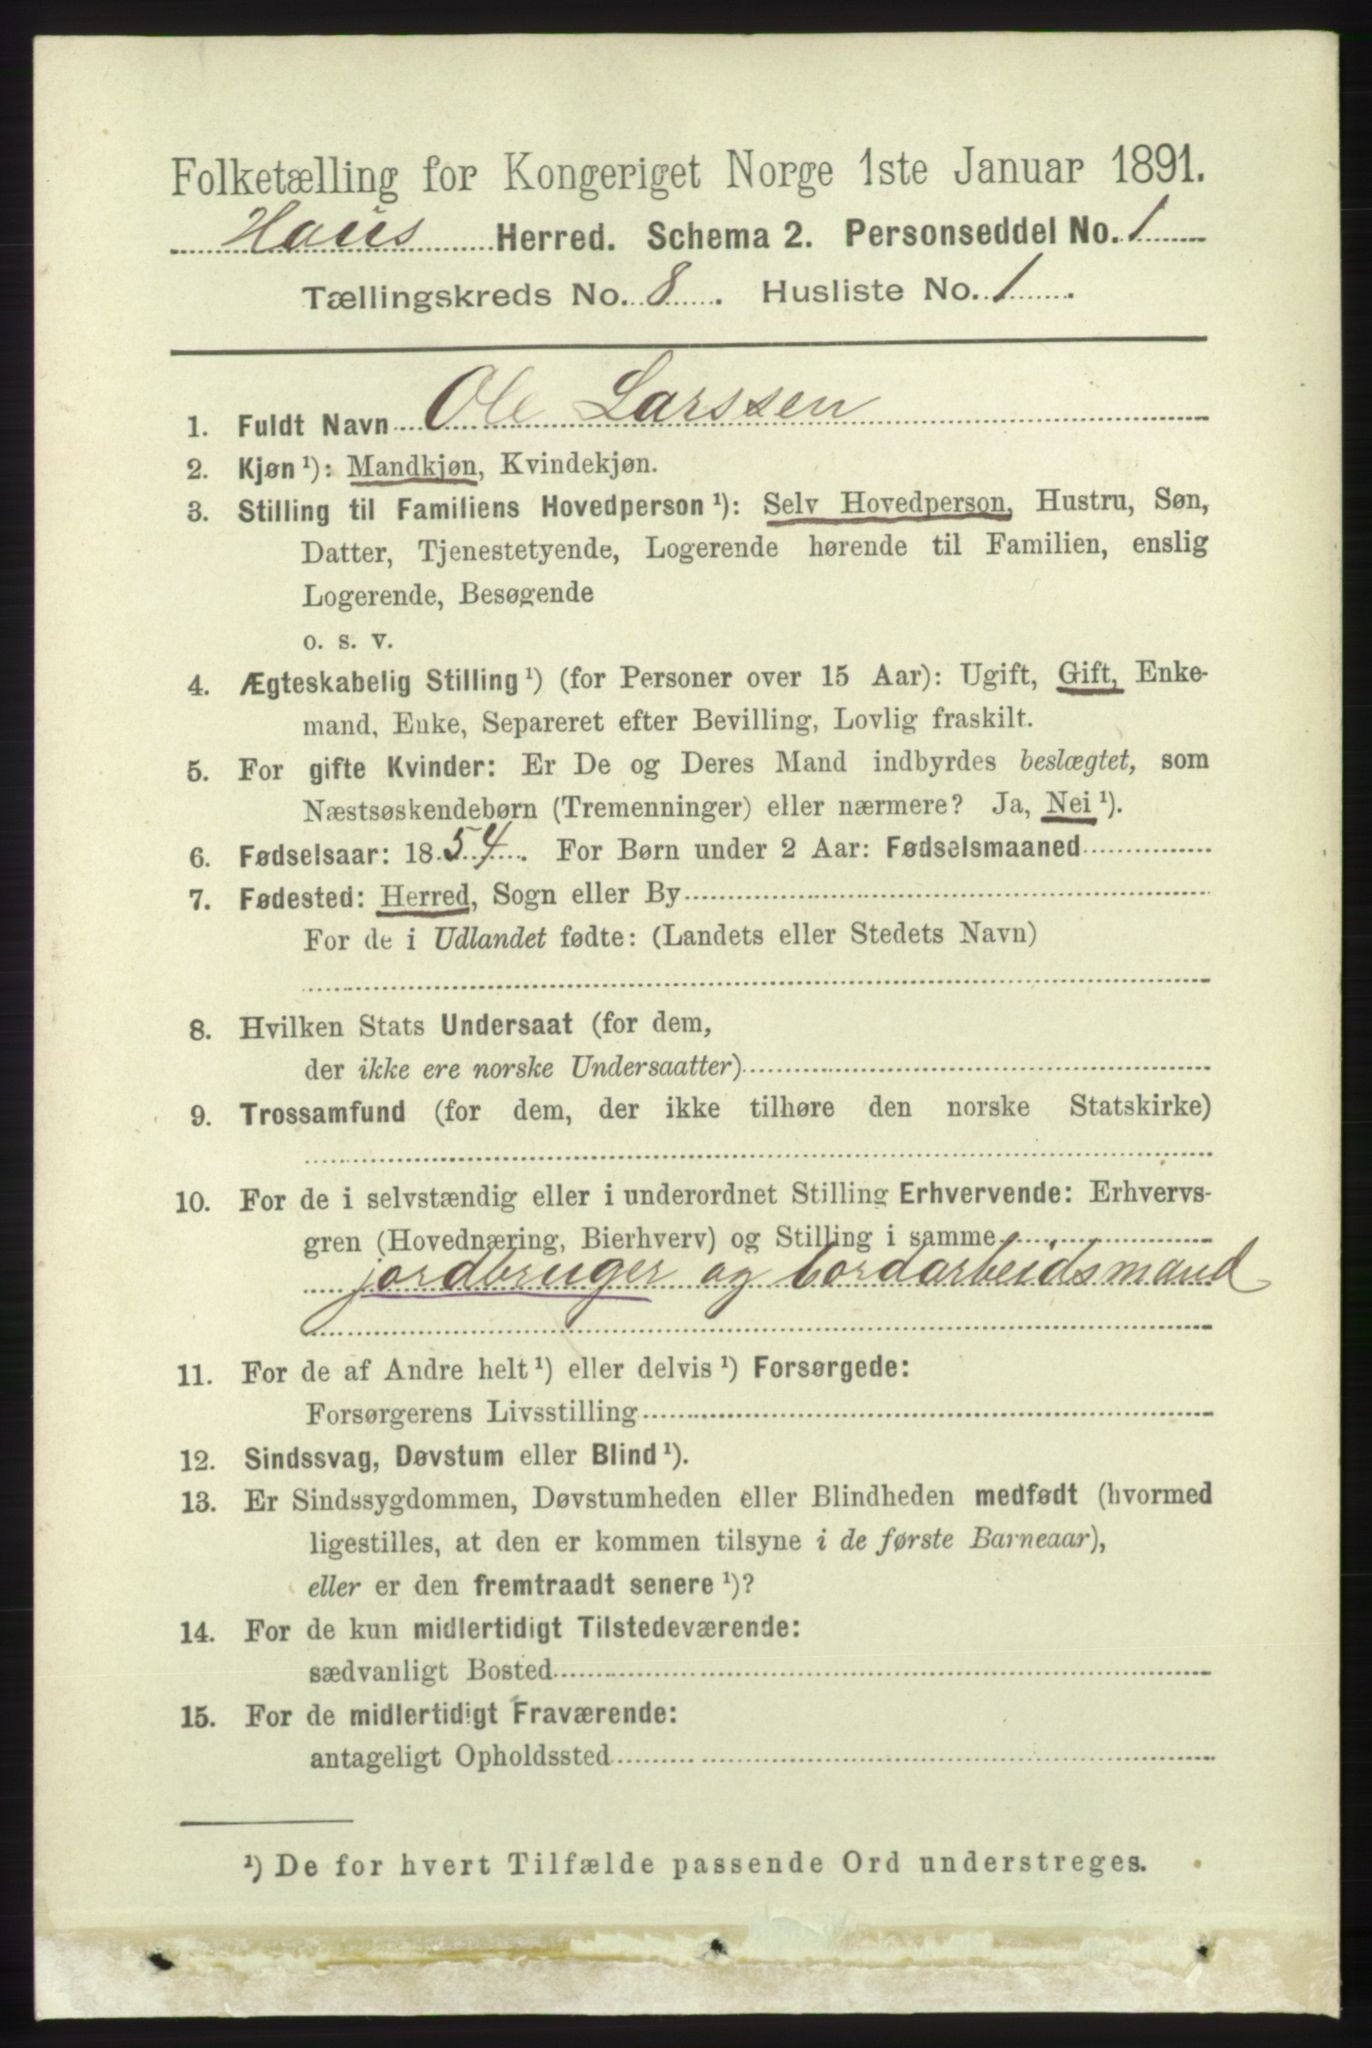 Folketælling for Kongeriget Norge 1ste Januar 1891.
Haus Herred. Schema 2. Personseddel No. 1
Tællingskreds No. 8. Husliste No. 1.
1. Fuldt Navn Ole Larssen
2. Kjøn ¹): Mandkjøn, Kvindekjøn.
3. Stilling til Familiens Hovedperson ¹): Selv Hovedperson, Hustru, Søn,
Datter, Tjenestetyende, Logerende hørende til Familien, enslig
Logerende, Besøgende
o. s. v.
4. Ægteskabelig Stilling ¹) (for Personer over 15 Aar): Ugift, Gift, Enke-
mand, Enke, Separeret efter Bevilling, Lovlig fraskilt.
5. For gifte Kvinder: Er De og Deres Mand indbyrdes beslægtet, som
Næstsøskendebørn (Tremenninger) eller nærmere? Ja, Nei ¹).
6. Fødselsaar: 1854. For Børn under 2 Aar: Fødselsmaaned
7. Fødested: Herred, Sogn eller By
For de i Udlandet fødte: (Landets eller Stedets Navn)
8. Hvilken Stats Undersaat (for dem,
der ikke ere norske Undersaatter)
9. Trossamfund (for dem, der ikke tilhøre den norske Statskirke)
10. For de i selvstændig eller i underordnet Stilling Erhvervende: Erhvervs-
gren (Hovednæring, Bierhverv) og Stilling i samme
jordbruger og bordarbeidsmand
11. For de af Andre helt ¹) eller delvis ¹) Forsørgede:
Forsørgerens Livsstilling
12. Sindssvag, Døvstum eller Blind ¹).
13. Er Sindssygdommen, Døvstumheden eller Blindheden medfødt (hvormed
ligestilles, at den er kommen tilsyne i de første Barneaar),
eller er den fremtraadt senere ¹)?
14. For de kun midlertidigt Tilstedeværende:
sædvanligt Bosted
15. For de midlertidigt Fraværende:
antageligt Opholdssted
¹) De for hvert Tilfælde passende Ord understreges.